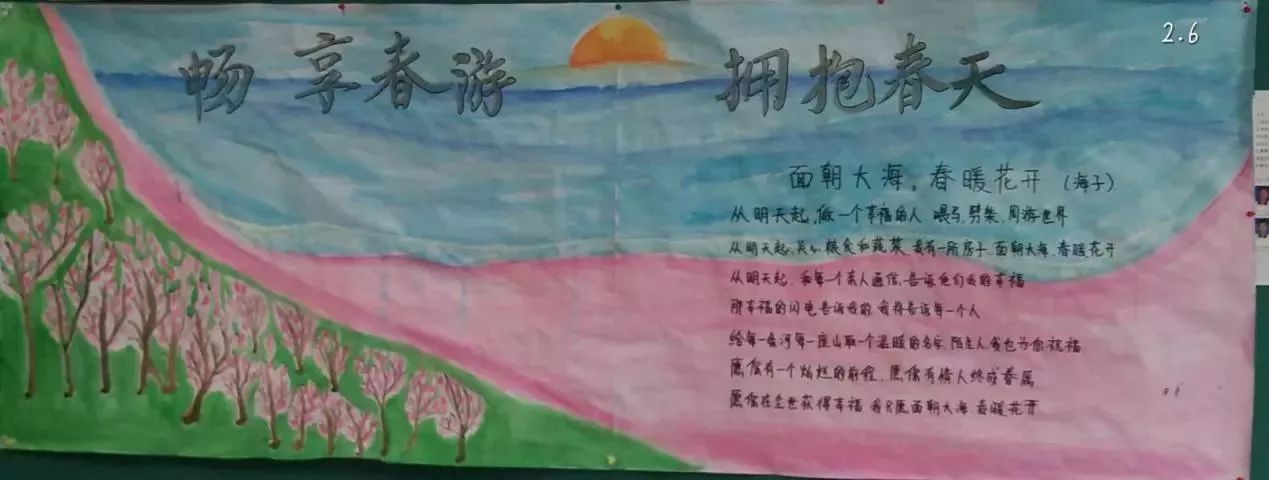 2.6
畅享春游 拥抱春天
面朝大海，春暖花开（海子）
从明天起，做一个幸福的人 喂马，劈柴，周游世界
从明天起，关心粮食和蔬菜，我有一所房子，面朝大海，春暖花开
从明天起，和每一个亲人通信，告诉他们我的幸福
那幸福的闪电告诉我的，我将告诉每一个人
给每一条河每一座山取一个温暖的名字，陌生人，我也为你祝福
愿你有一个灿烂的前程，愿你有情人终成眷属
愿你在尘世获得幸福 我只愿面朝大海 春暖花开